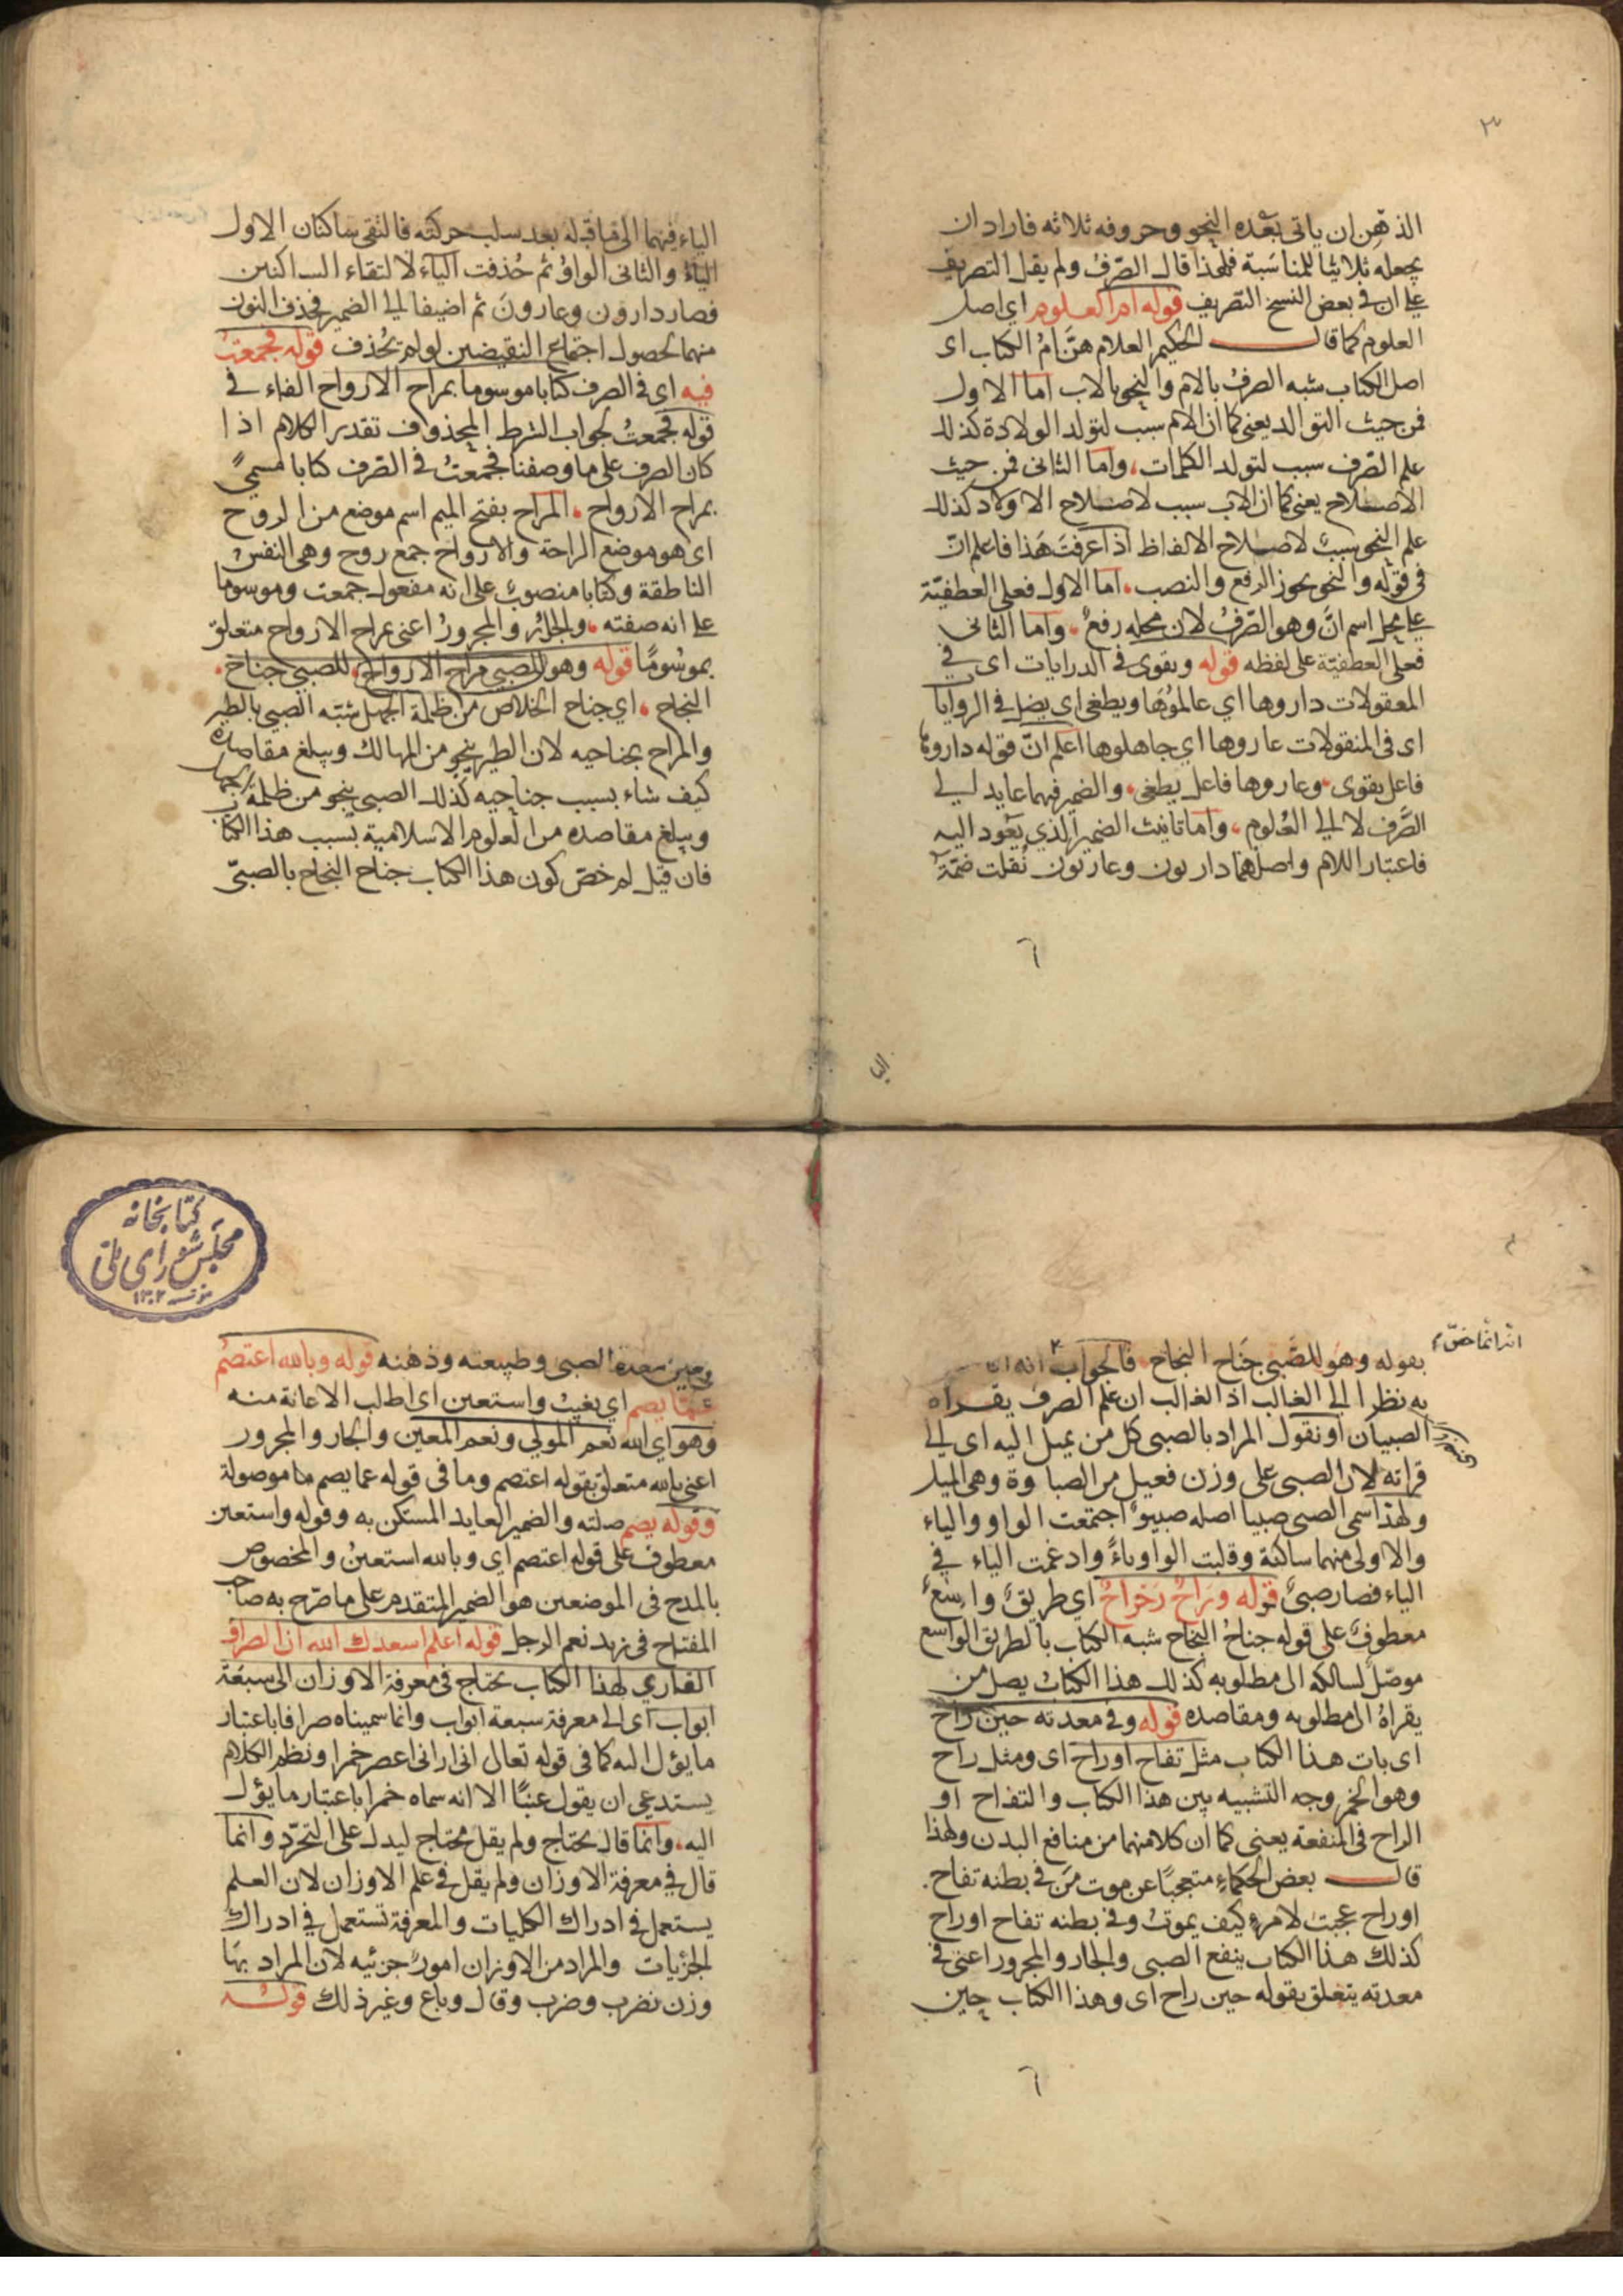 ٣
الذهن ان ياتى بعده النحو وحروفه ثلاثه فاراد ان
يجعله ثلاثيا للمناسبة فلهذا قال الصّرفُ ولم يقل التصريف
على ان فى بعض النسخ التصريف قوله ام العلوم اي اصل
العلوم كما قال الحكيم العلام هنَّ امُّ الكتاب اى
اصل الكتاب شبه الصرفُ بالام والنحو بالاب اما الاول
فمن حيث التوالد يعنى كما ان الام سبب لتولد الولادة كذلك
علم الصّرف سبب لتولد الكلمات، واما الثانى فمن حيث
الاصلاح يعنى كما ان الاب سبب لاصلاح الاولاد كذلك
علم النحو سببٌ لاصلاح الالفاظ اذا عرفتَ هَذا فاعلم انّ
فى قوله والنحو يجوز الرفع والنصب، اما الاول فعلى العطفيّة
على محل اسم انَّ وهو الصّرفُ لان محله رفعٌ، واما الثانى
فعلى العطفيّة على لفظه قوله ويقوى فى الدرايات اى فى
المعقولات داروها اي عالموُهَا ويطغى اى يضل فى الروايا
اى فى المنقولات عاروها اي جاهلوها اعلم انّ قوله داروها
فاعل يقوى، وعاروها فاعل يطغى، والضمير فيهما عايد الى
الصَّرف لا الى العُلوم، واما تانيث الضمير الذي يَعود اليه
فاعتبار اللام واصلهما داريون وعاريون نُقلت ضمّة
٦
اليا
الياء فيهما الى ما قبله بعد سلب حركته فالتقى ساكنان الاول
الياءُ والثانى الواوُ ثم حُذفت الياءُ لالتقاء الساكنين
فصار دارون وعارونَ ثم اضيفا الى الضمير فحذف النون
منهما لحصول اجتماع النقيضين لو لم تحُذف قوله فجمعتُ
فيه اى فى الصرف كتابا موسوما بمراح الارواح الفاء فى
قوله فجمعتُ لجواب الشرط المحذوف تقدير الكلام اذا
كان الصرف على ما وصفنا فجمعتُ فى الصّرف كتابا مسمىً
بمراح الارواح، المراح بفتح الميم اسم موضع من الروح
اى هو موضع الراحة والارواح جمع روح وهى النفس
الناطقة وكتابا منصوبٌ على انه مفعول جمعت وموسوما
على انه صفته، والجارُّ والمجرورُ اعنى بمراح الارواح متعلق
بموسُومًا قوله وهو للصبي مراح الارواح، للصبي جناح،
النجاح، اي جناح الخلاص من ظلمة الجهل شبّه الصبي بالطير
والمراح بجناحيه لان الطير ينجو من المهالك ويبلغ مقاصده
كيف شاء بسبب جناحيه كذلك الصبى ينجو من ظلمة الجهل
ويبلغ مقاصده من العلوم الاسلامية بسبب هذا الكتاب
فان قيل لم خصّ كون هذا الكتاب جناح النجاح بالصبىّ
كتابخانه
مجلس شوراى ملى
١٣٠٢
انه انما خصّ
بقوله وهو للصَّبى جنَاح النجاح فالجواب انه
به نظرا الى الغالب اذ الغالب ان علم الصرف يقراه
الصبيان او نقول المراد بالصبى كل من يميل اليه اى الى
قراته لان الصبى على وزن فعيل من الصباوة وهى الميل
ولهذا سمى الصبى صبيا اصله صبيوٌ اجتمعت الواو والياء
والاولى منهما ساكنة وقلبت الواو ياءً وادغمت الياء فى
الياء فصار صبىٌ قوله ورَاحٌ رَحْراحٌ اي طريقٌ واسعٌ
معطوفٌ على قوله جناحُ النجاح شبه الكتاب بالطريق الواسع
موصل لسالكه الى مطلوبه كذلك هذا الكتابُ يصل من
يقراهُ الى مطلوبه ومقاصده قوله وفى معدته حين رَاح
اى بات هذا الكتاب مثل تفاح او راح اى ومثل راح
وهو الخمر وجه التشبيه بين هذا الكتاب والتفاح او
الراح فى المنفعة يعنى كما ان كلا منهما من منافع البدن ولهذا
قال بعض الحكماءِ متعجبًا عن موت مَن فى بطنه تفاح
او راح عجبت لامرءٍ كيف يموتُ وفى بطنه تفاح او راح
كذلك هذا الكتاب ينفع الصبى والجار والمجرور اعنى فى
معدته يتعلق بقوله حين راح اى وهذا الكتاب حين
٦
معدة الصبى وطبيعته وذهنه قوله وبالله اعتصمُ
عمّا يصم اي يغيبُ واستعين اى اطلب الاعانة منه
وهو اي الله نعم المولى ونعم المعين والجار والمجرور
اعنى بالله متعلق بقوله اعتصم وما فى قوله عما يصم ما موصولة
وقوله يصم صلته والضمير العايد المستكن به وقوله واستعين
معطوف على قوله اعتصم اي وبالله استعينُ والمخصوص
بالمدح فى الموضعين هو الضمير المتقدم على ما صرّح به صاحب
المفتاح فى زيد نعم الرجل قوله اعلم اسعدك الله ان الصراف
القارى لهذا الكتاب يحتاج فى معرفة الاوزان الى سبعَة
ابواب اى الى معرفة سبعة ابواب وانما سميناه صرافا باعتبار
ما يؤل اليه كما فى قوله تعالى انى ارانى اعصر خمرا ونظم الكلام
يستدعى ان يقول عنبًا الا انه سماه خمرا باعتبار ما يؤل
اليه، وانما قال يحتاج ولم يقل محتاج ليدل على التجرّد وانما
قال فى معرفة الاوزان ولم يقل فى علم الاوزان لان العلم
يستعمل فى ادراك الكليات والمعرفة تستعمل فى ادراك
الجزئيات والمراد من الاوزان امورٌ جزئيه لان المراد بها
وزن نضرب وضرب وقال وباع وغير ذلك قوله